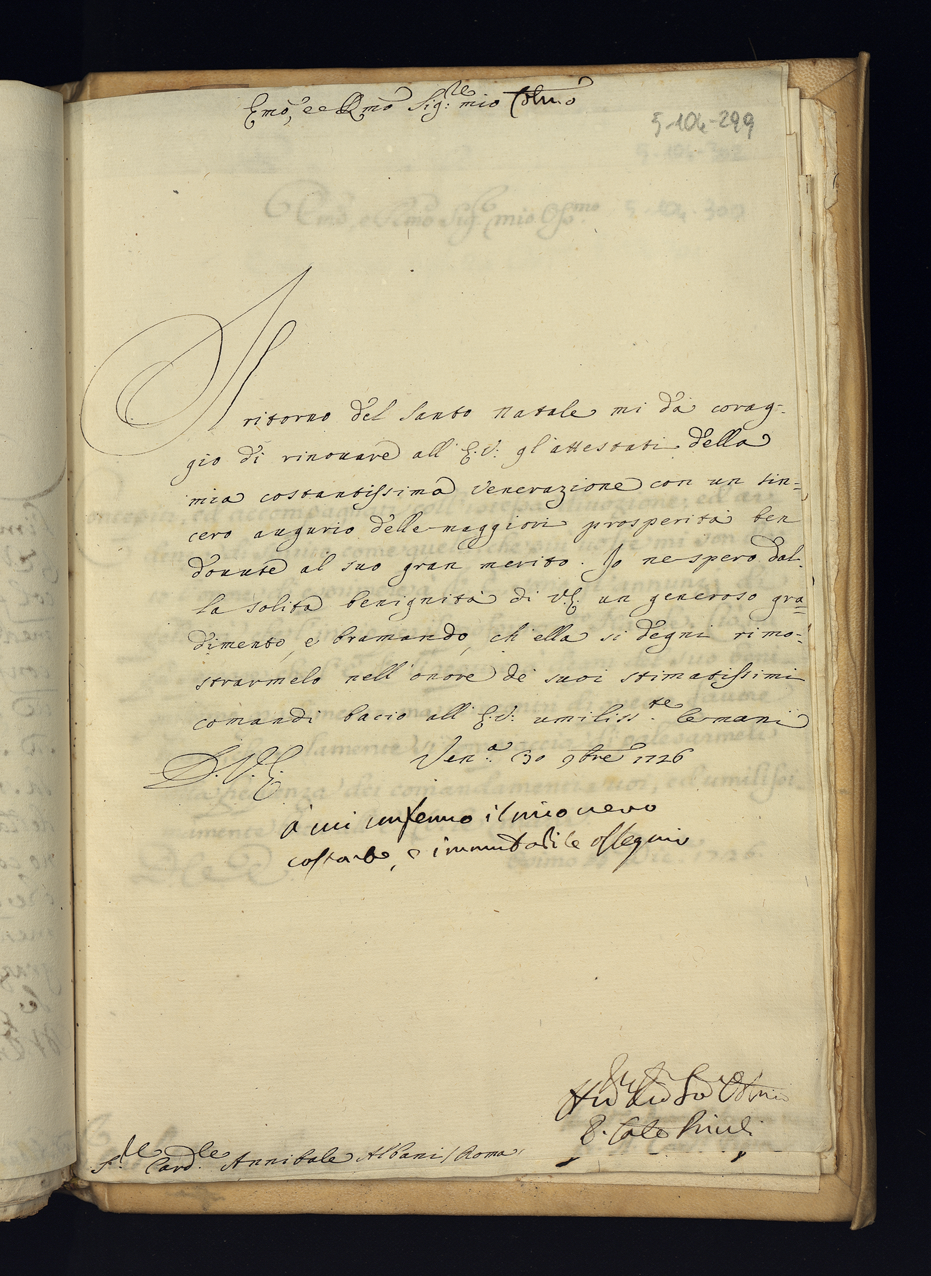 Emo, e Rmo Sig:re mio Colmo
5-104-299
Il ritorno del santo natale mi dà corag-
gio di rinouare all'E.V: gl'attestati della
mia costantissima venerazione con un sin=
cero augurio delle maggiori prosperità ben
douute al suo gran merito. Io ne spero dal-
la solita benignità di V.E. un generoso gra=
dimento, e bramando, ch'ella si degni rimo-
strarmelo nell'onore de suoi stimatissimi
comandi bacio all'E.V: umiliss.te le mani
D.V.E. Ven.a 30 9bre 1726
à cui confermo il mio vero
costante, e immutabile ossequio
S.r Card.le Annibale Albani / Roma